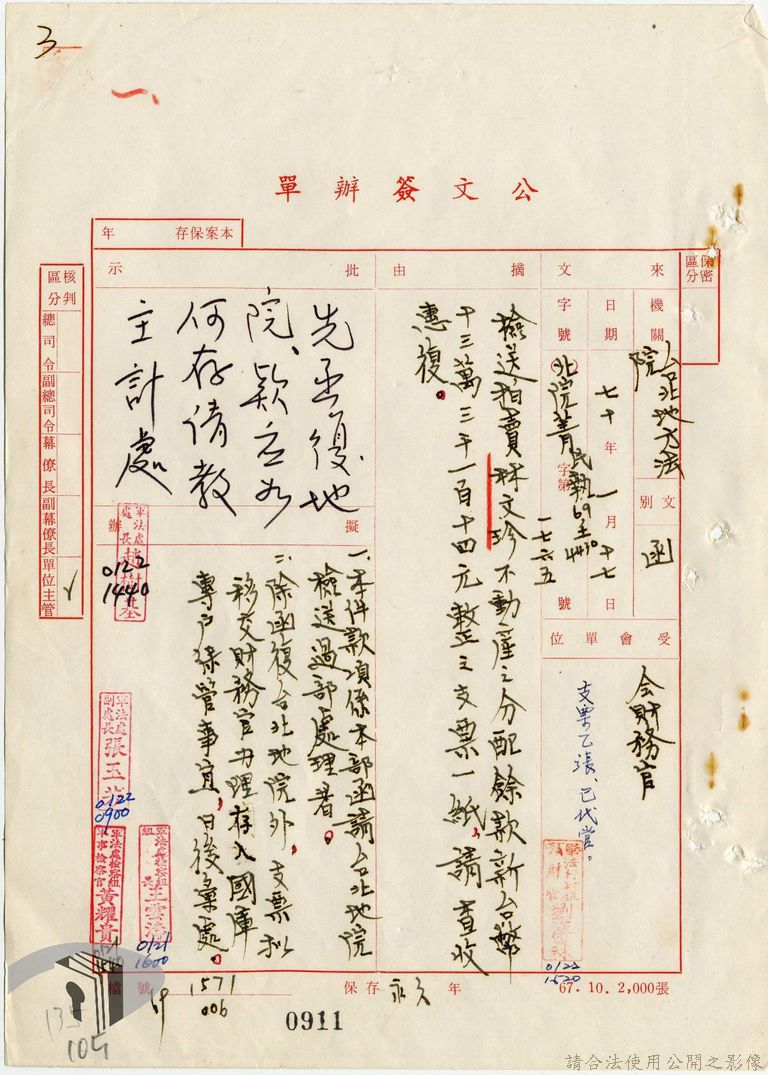 3
一、
公文簽辦單
本案保存 年
保密區分
來文
機關
台北地方法院
日期
七十年一月十七日
字號
(  )北院菁民執69壬4430字第一七六五號
文別
函
受會單位
會財務官
支票乙張、已代管。
0122
1520
摘由
檢送拍賣林文珍不動產之分配餘款新台幣
十三萬三千一百十四元整之支票一紙,請查收
惠復。
批示
先函復地
院、款應如
何存請教
主計處
擬辦
一、本件款項係本部函請台北地院
檢送過部處理者。
二、除函復台北地院外,支票擬
移交財務官办理存入國庫
專户保管事宜,日後彙處。
軍法處處長趙樹基
0122
1440
軍法處副處長張玉
0122
0900
軍法處檢察組組長王雲濤
0121
1600
軍法處檢察組軍事檢察官黃耀貴
核判區分
總司令
副總司令
幕僚長
副幕僚長
單位主管
✓
檔號
1571
006
保存 永久 年
67.10.2,000張
0911
135
105
請合法使用公開之影像